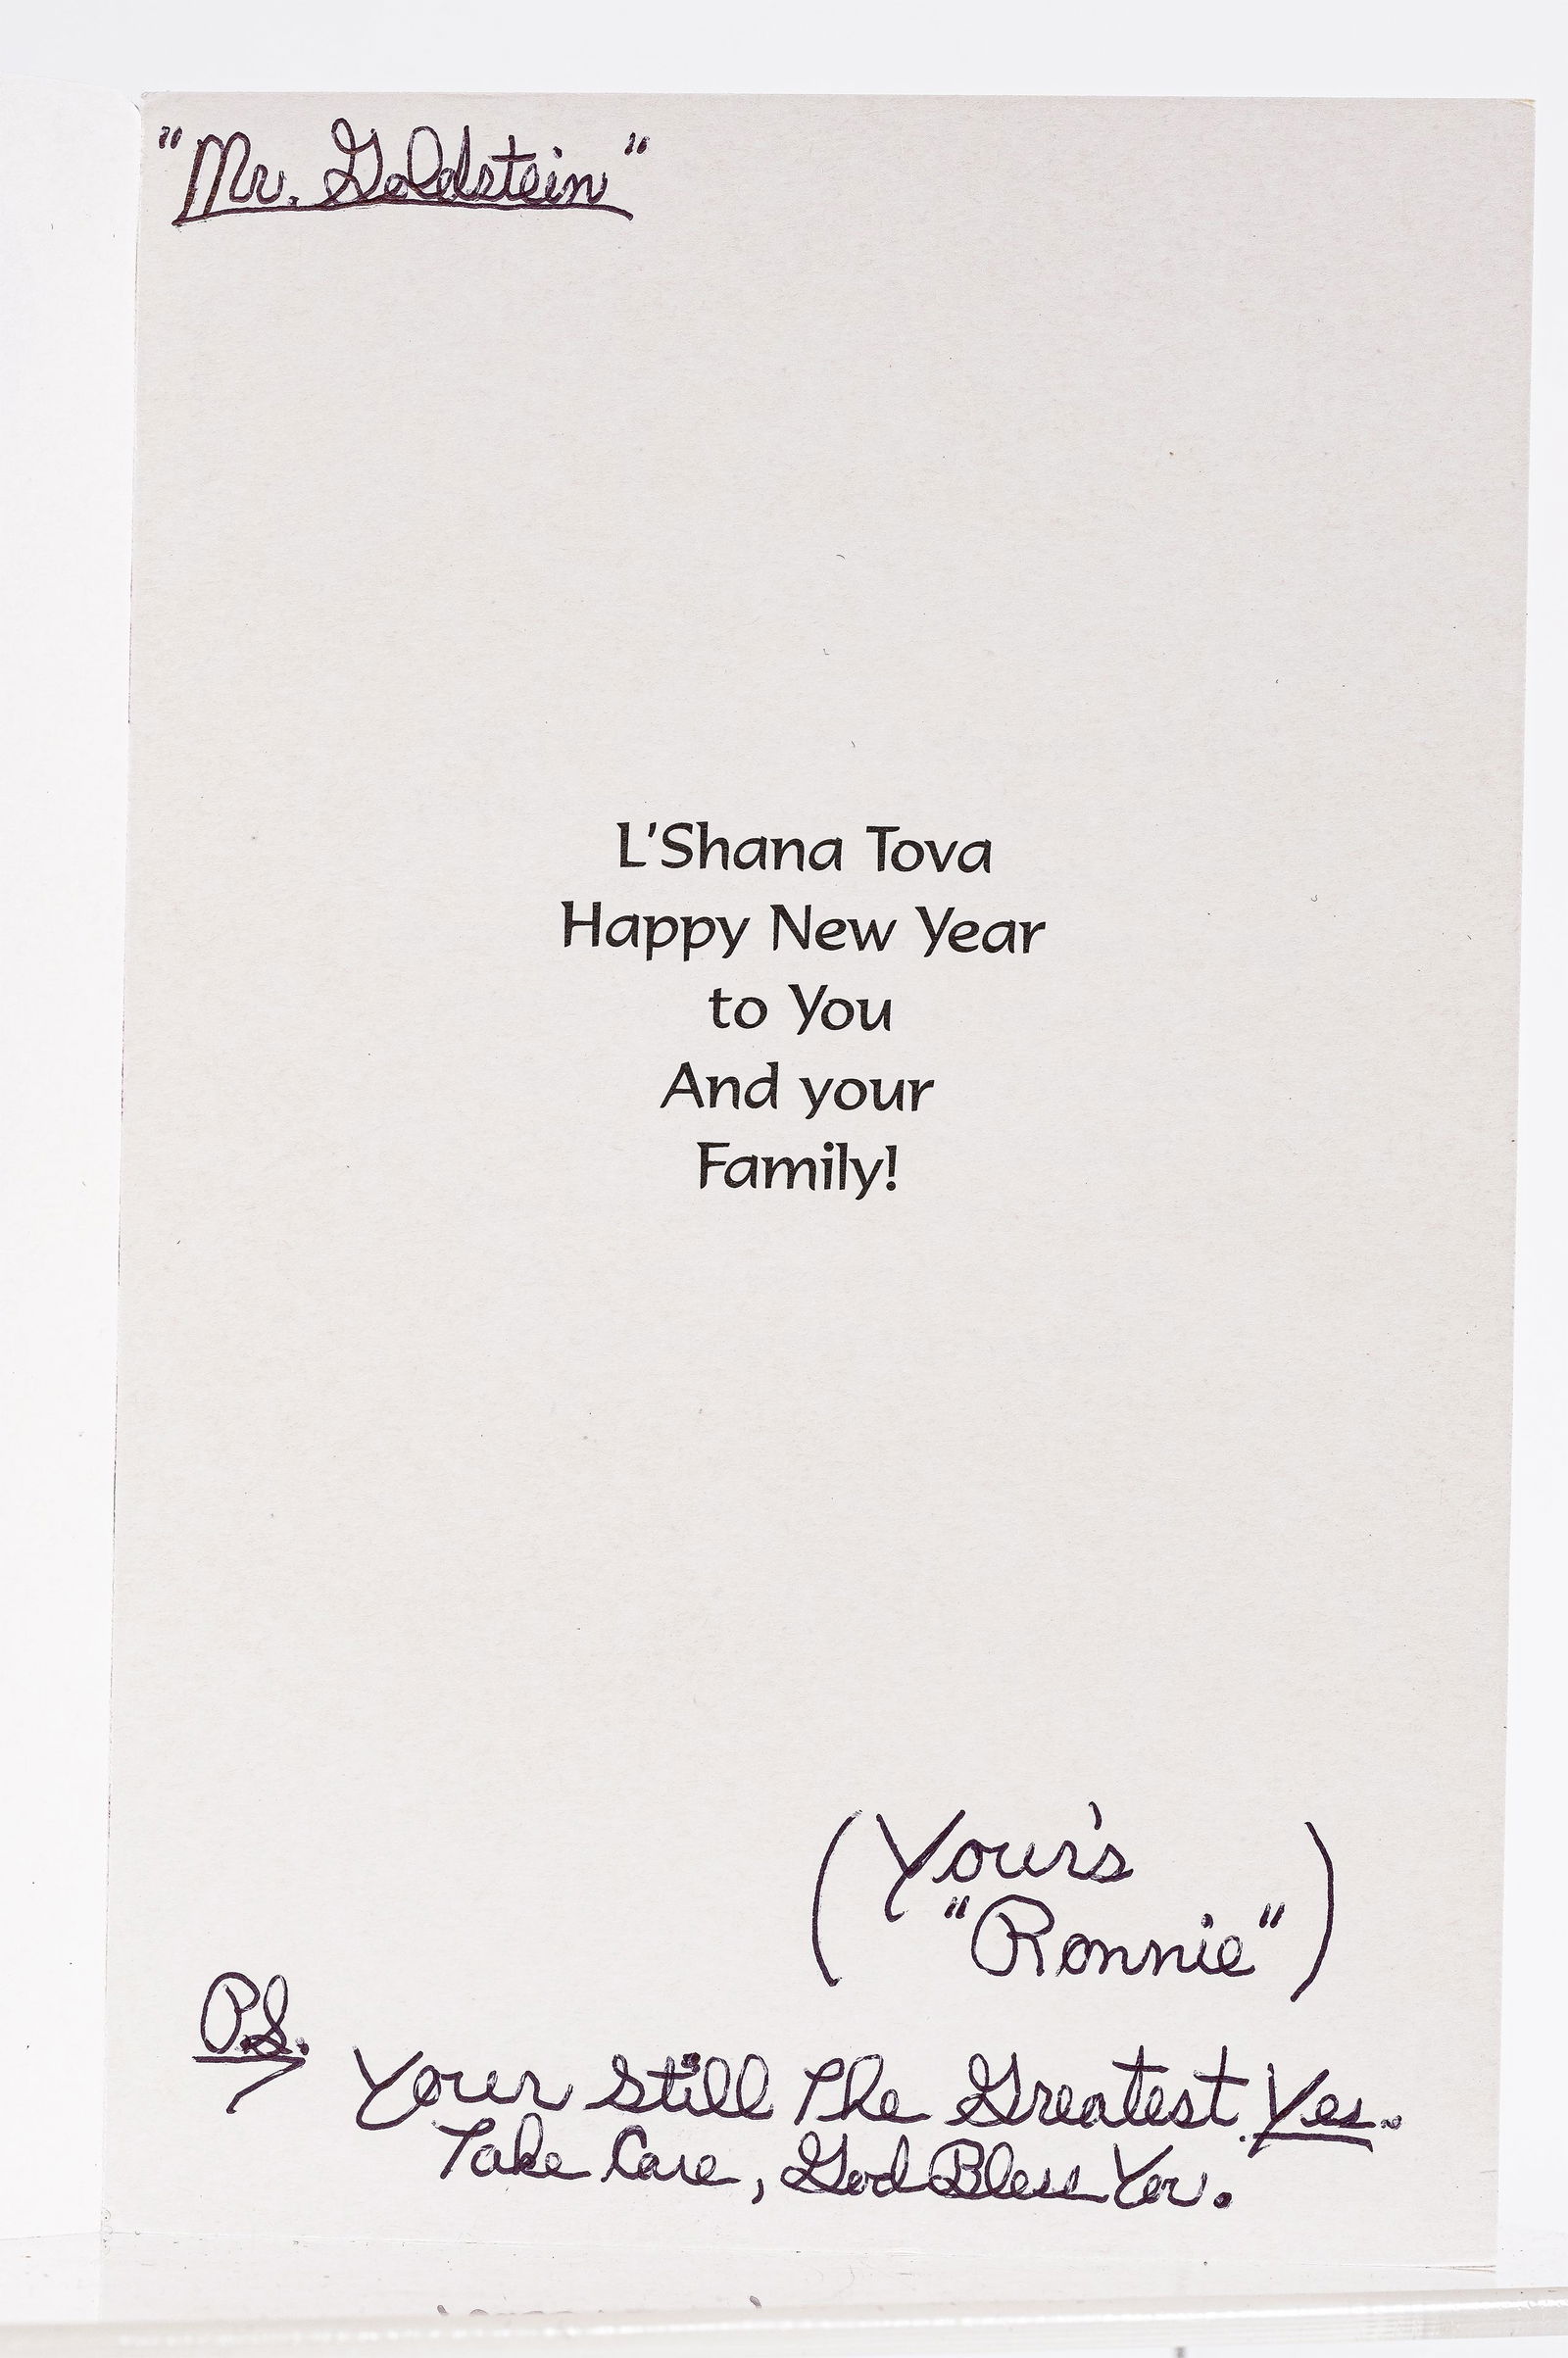 "Mr. Goldstein"
L'Shana Tova
Happy New Year
to You
And your
Family!
(Your's
"Ronnie")
P.S.
Your Still The Greatest. Yes.
Take Care, God Bless You.